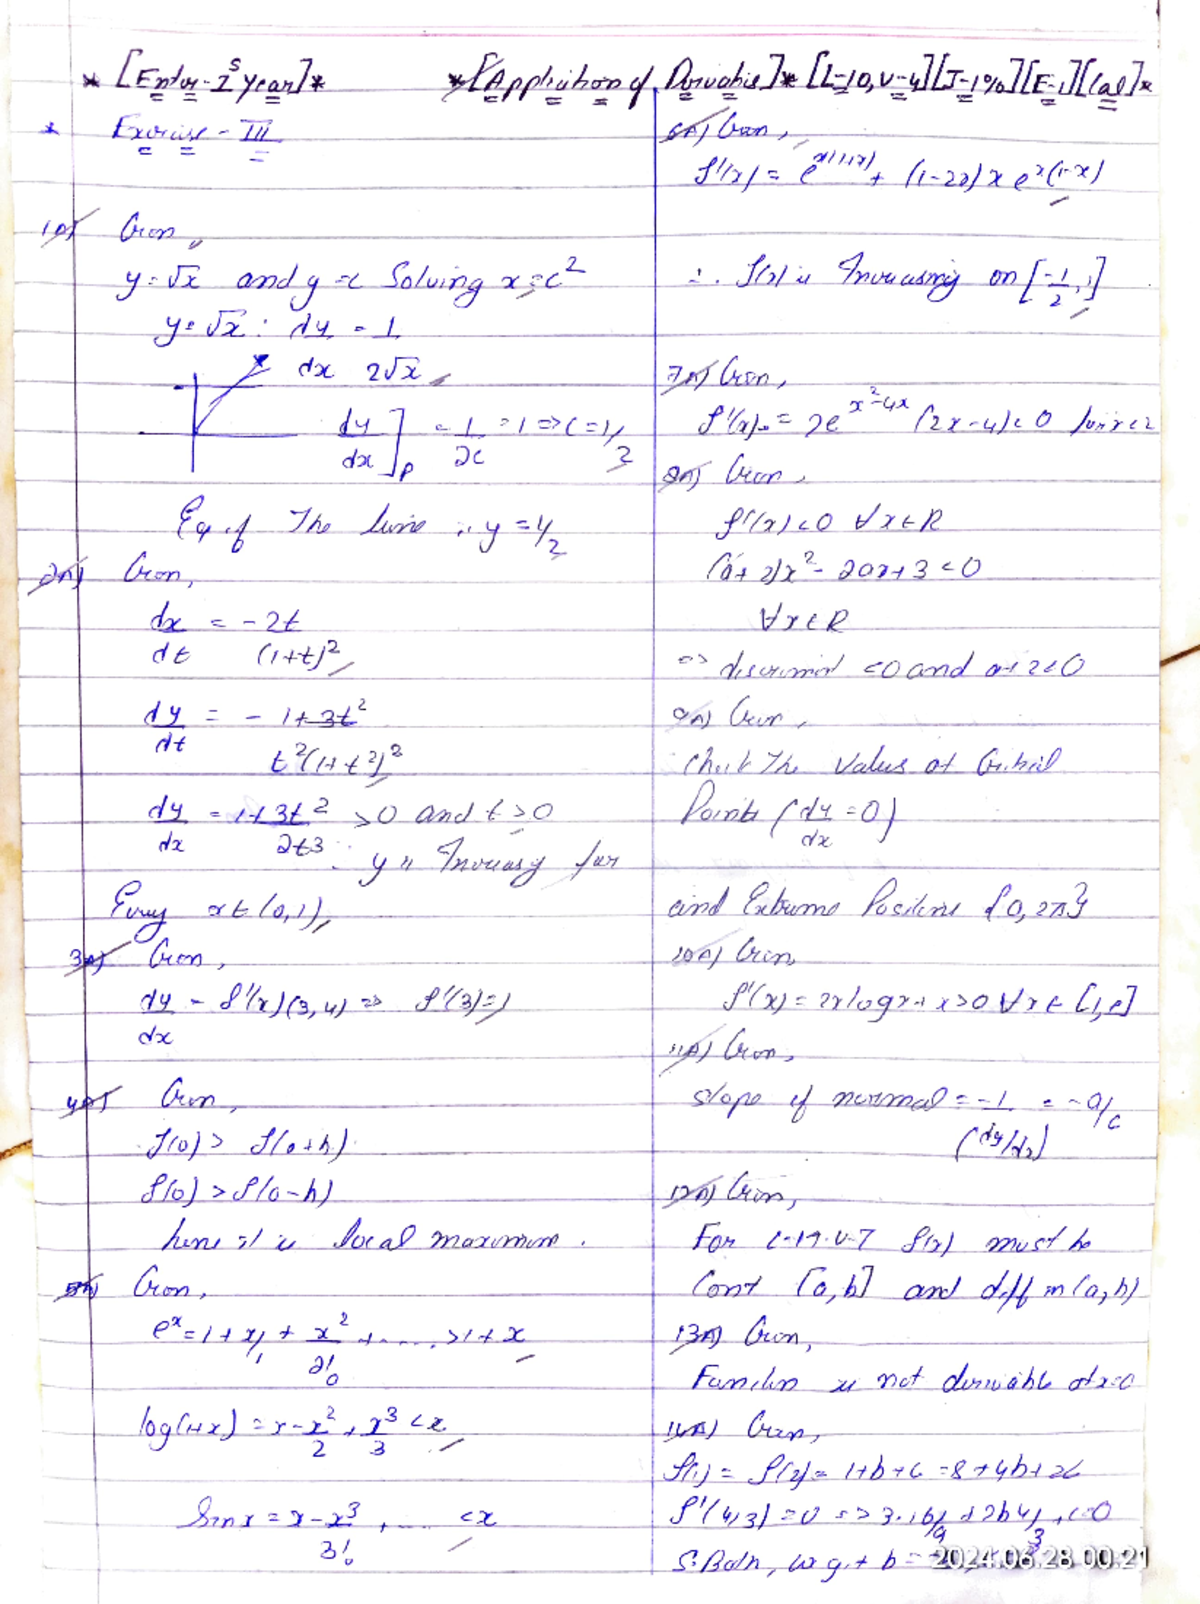 * [Enter-1st year] * *[Application of Derivatives]* [L-10, V-4][J-1%][E-1][Cal]*
* Exercise - III
1A) Given,
y = √x and y = c Solving x = c²
y = √x : dy/dx = 1/2√x
dy/dx]p = 1/2c = 1 => c = 1/2
Eq of The line is y = 1/2
2A) Given,
dx/dt = -2t/(1+t)²
dy/dt = - 1+3t²/t²(1+t²)²
dy/dx = 1+3t²/2t3 >0 and t>0
∴ y is Increasy for
Every x ∈ (0,1),
3A) Given,
dy/dx - f'(x)(3,4) => f'(3)=1
4A) Given,
f(0) > f(0+h)
f(0) > f(0-h)
hence it is local maximum.
5A) Given,
e^x = 1 + x/1 + x²/2! + ..... > 1 + x
log(1+x) = x - x²/2 + x³/3 < x
Sin x = x - x³/3! + .... < x
6A) Given,
f'(x) = e^x(1-x) + (1-2x) x e^x(1-x)
∴ f(x) is Increasing on [-1/2, 1]
7A) Given,
f'(x) = 2e^x²-4x (2x-4) < 0 for x<2
8A) Given,
f'(x) <0 ∀x∈R
(a+2)x² - 2ax+3 <0
∀x∈R
=> discrimint <0 and a+2<0
9A) Given,
Check The Values at Critical
Points (dy/dx = 0)
and Extreme Positions {0, 2π}
10A) Given,
f'(x) = 2xlogx + x >0 ∀x ∈ [1,e]
11A) Given,
slope of normal = -1/(dy/dx) = -a/c
12A) Given,
For L-M-V-T f(x) must be
Cont [a,b] and diff in (a,b)
13A) Given,
Function is not derivable at x=0
14A) Given,
f(1) = f(2) = 1+b+c = 8+4b+2c
f'(4/3) = 0 => 3.16/9 + 2b4/3 + c=0
S. Both, we get b =
2024.06.28 00:21